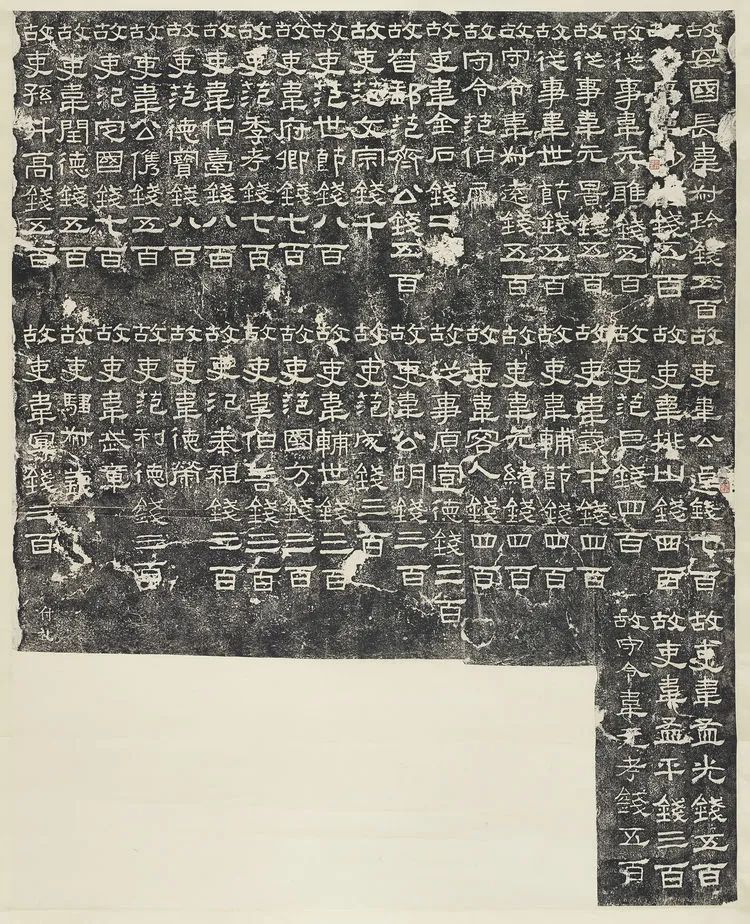 故安國長韋叔珍錢五百
故錢五百
故從事韋元雅錢五百
故從事韋元景錢五百
故從事韋世節錢五百
故守令韋叔遠錢五百
故守令范伯犀
故督郵范齊公錢五百
故吏韋金石錢二
故吏范文宗錢千
故吏范世節錢八百
故吏韋府卿錢七百
故吏范季考錢七百
故吏韋伯臺錢八百
故吏范德寶錢八百
故吏韋公儁錢五百
故吏氾定國錢七百
故吏韋閏德錢五百
故吏孫升高錢五百
故吏韋公逴錢七百
故吏韋排山錢四百
故吏范巨錢四百
故吏韋義才錢四百
故吏韋輔節錢四百
故吏韋元緒錢四百
故吏韋客人錢四百
故從事原宣德錢三百
故吏韋公明錢三百
故吏范成錢三百
故吏韋輔世錢三百
故吏范國方錢三百
故吏韋伯善錢三百
故吏氾奉祖錢三百
故吏韋德榮
故吏范利德錢三百
故吏韋武章
故吏騶叔義
故吏韋宣錢三百
故吏韋孟光錢五百
故吏韋孟平錢三百
故守令韋元考錢五百